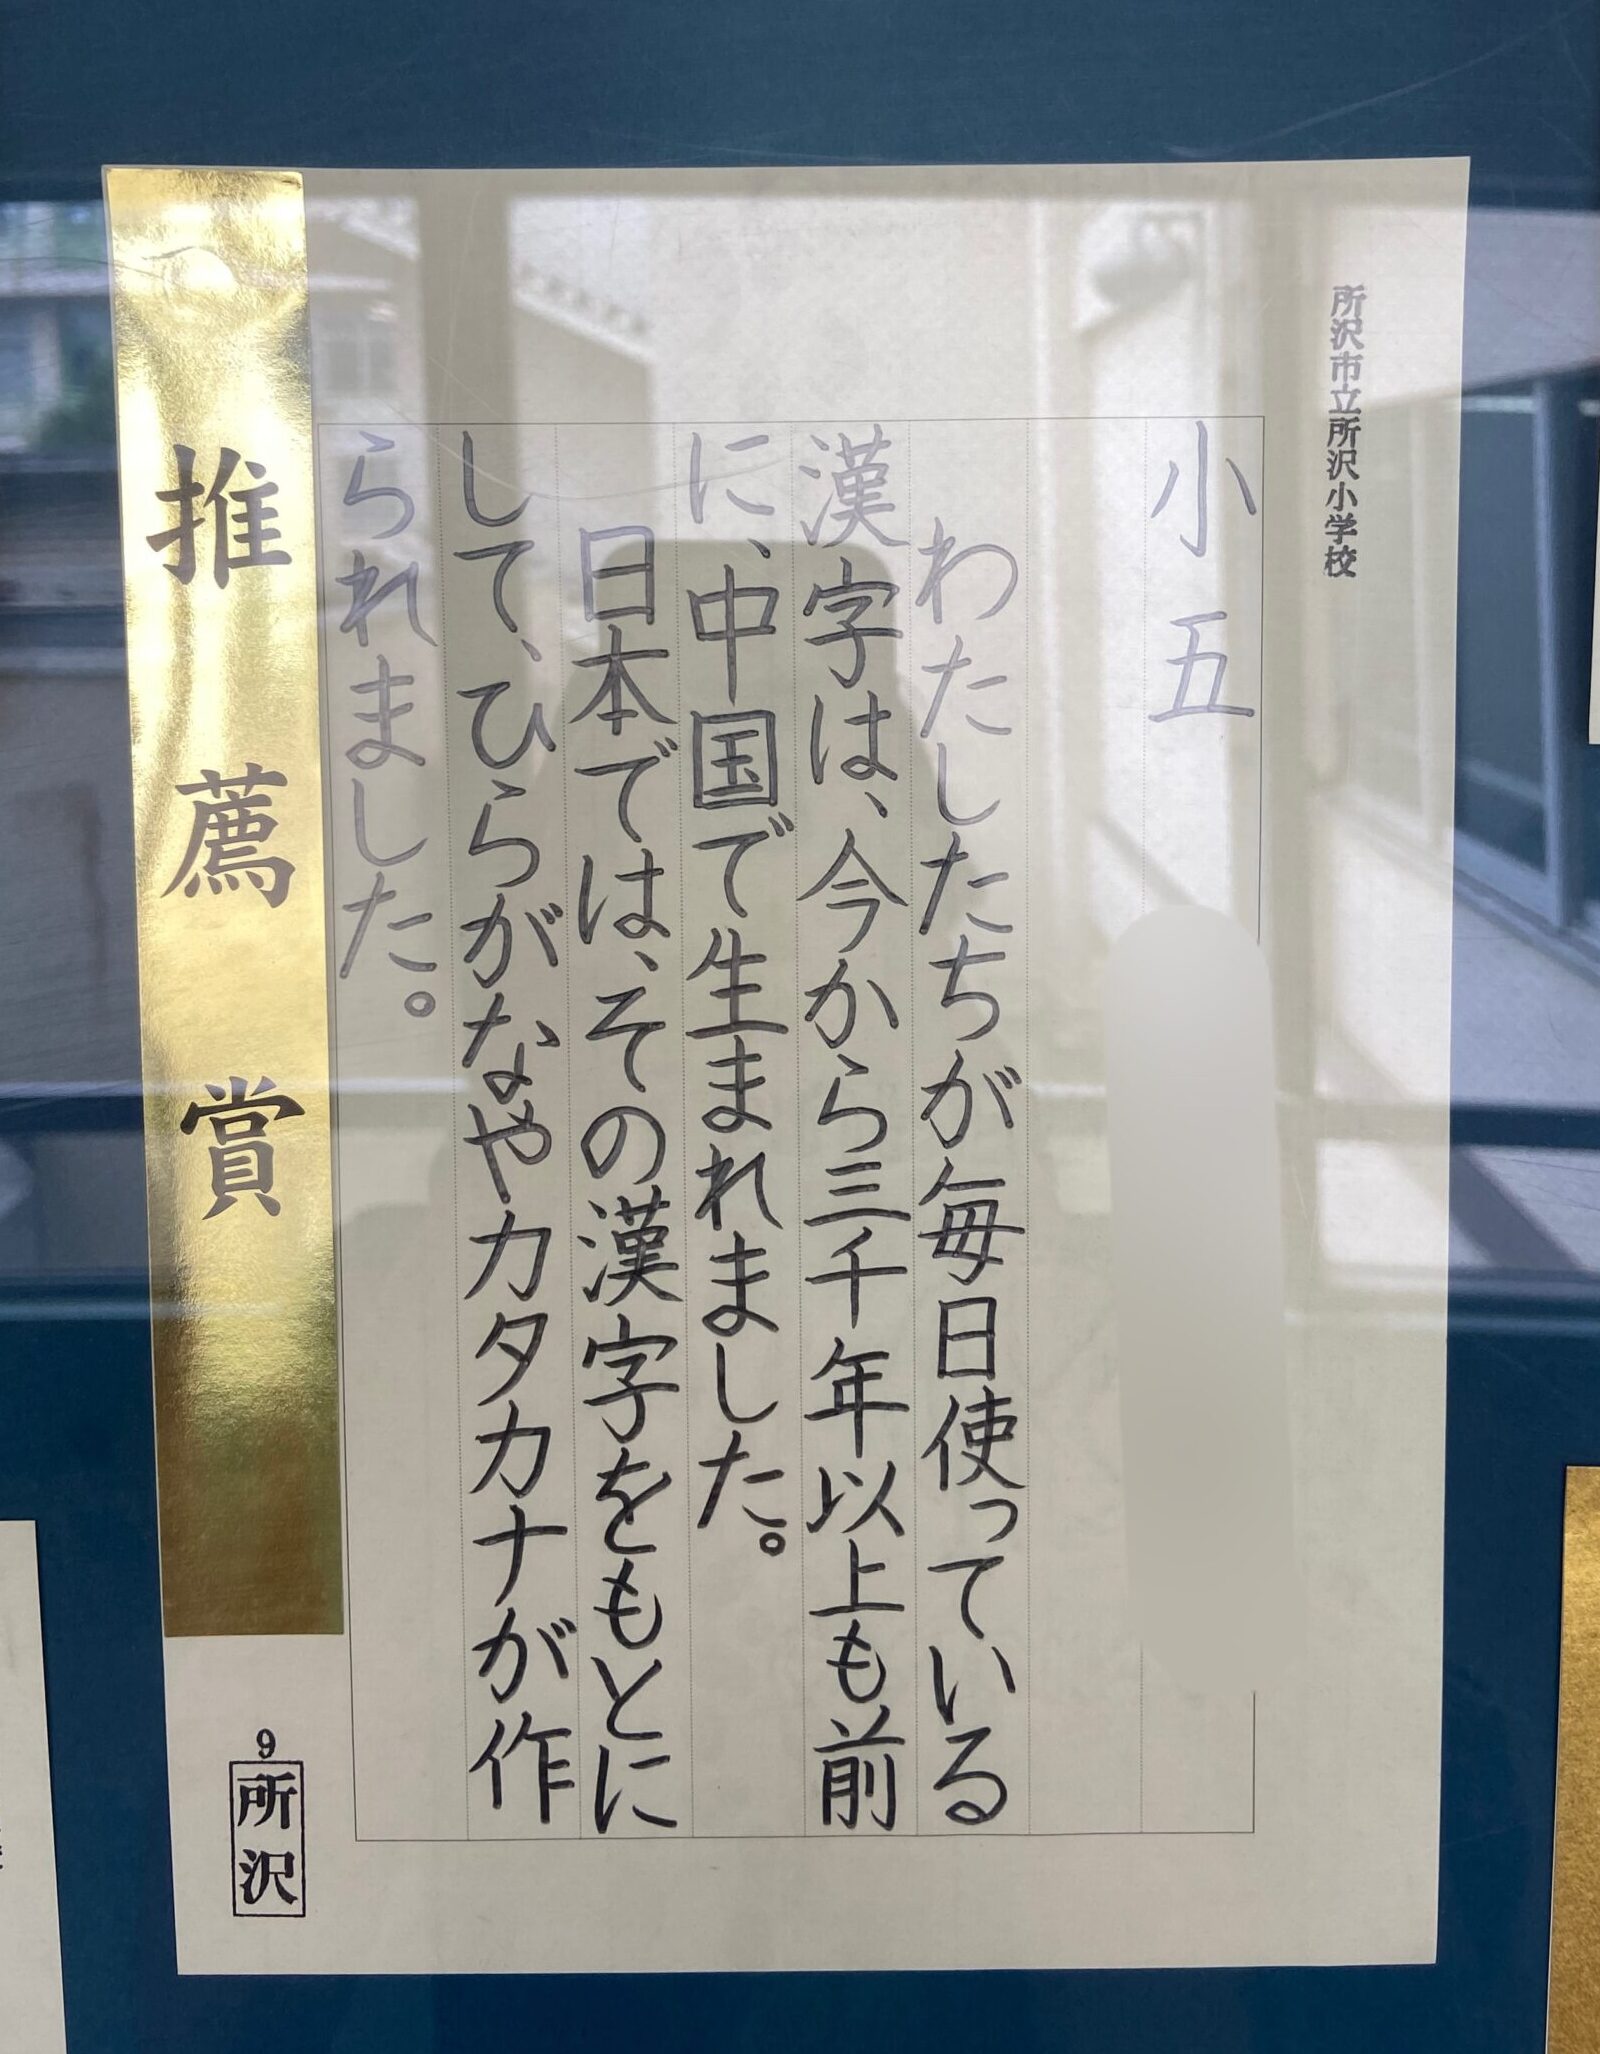 所沢市立所沢小学校
小五
わたしたちが毎日使っている
漢字は、今から三千年以上も前
に、中国で生まれました。
日本では、その漢字をもとに
して、ひらがなやカタカナが作
られました。
推薦賞
9
所沢